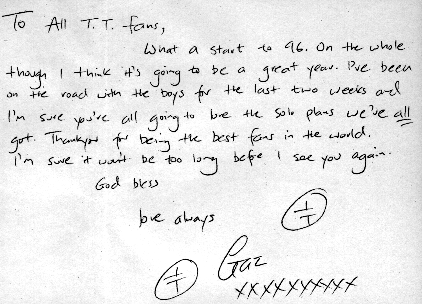 To All T.T. fans,
What a start to 96. On the whole
though I think it's going to be a great year. I've been
on the road with the boys for the last two weeks and
I'm sure you're all going to love the solo plans we've all
got. Thankyou for being the best fans in the world.
I'm sure it won't be too long before I see you again.
God bless
love always
Gaz
xxxxxxxxxx